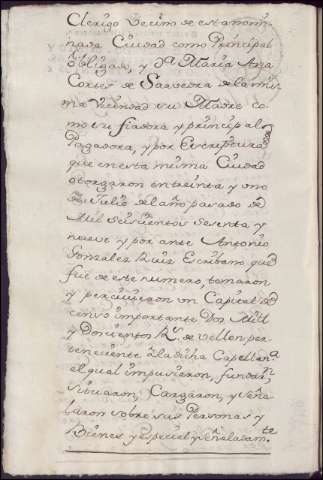 Clerigo Vecino de esta nomi-
nada Ciudad como Principal
Obligado, y Dª Maria Ana
Cortes de Saavedra de la mis-
ma Vecindad su Madre co-
mo su fiadora y principal
Pagadora, y por Escriptura
que en esta misma Ciudad
otorgaron en treinta y uno
de Julio del año pasado de
Mil Seiscientos Sesenta y
nueve y por ante Antonio
Gonzalez Ruiz Escribano que
fue de este numero, tomaron
y percivieron un Capital de
censo importante Dos Mil
y Doscientos Rs. de vellon per-
teneciente a la dicha Capellanª
el qual impusieron, fundarⁿ
situaron, Cargaron, y Seña-
laron sobre sus Personas y
Bienes y especial y señaladamte